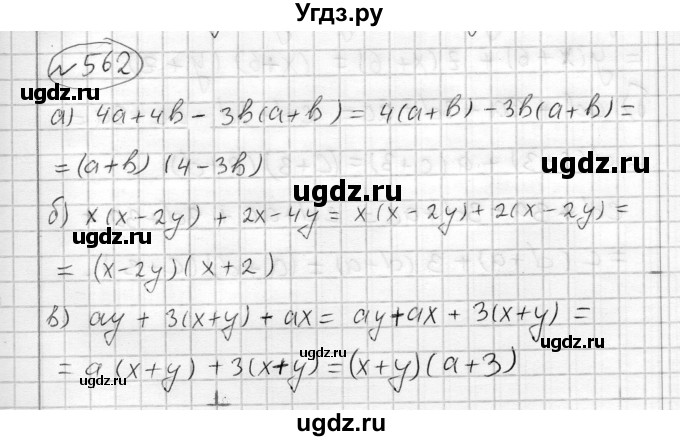 Угдз.ру
№562
ugdz.ru
а) 4a+4b - 3b(a+b) = 4(a+b) - 3b(a+b) =
= (a+b) (4-3b)
ugdz.ru
ugdz.ru
б) x(x-2y) + 2x-4y = x(x-2y)+2(x-2y) =
ugdz.ru
= (x-2y)(x+2)
ugdz.ru
в) ay + 3(x+y) + ax = ay+ax + 3(x+y) =
ugdz.ru
= a(x+y) + 3(x+y) = (x+y)(a+3)
ugdz.ru
ugdz.ru